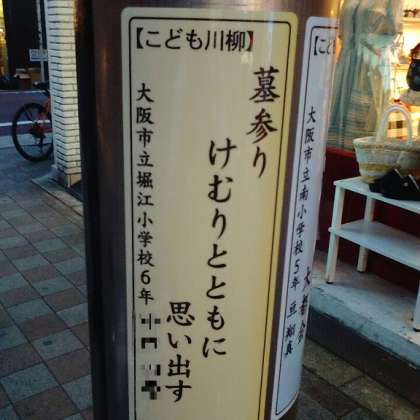 【こども川柳】
墓参り
けむりとともに
思い出す
大阪市立堀江小学校6年
【こど
大阪市立南小学校5年